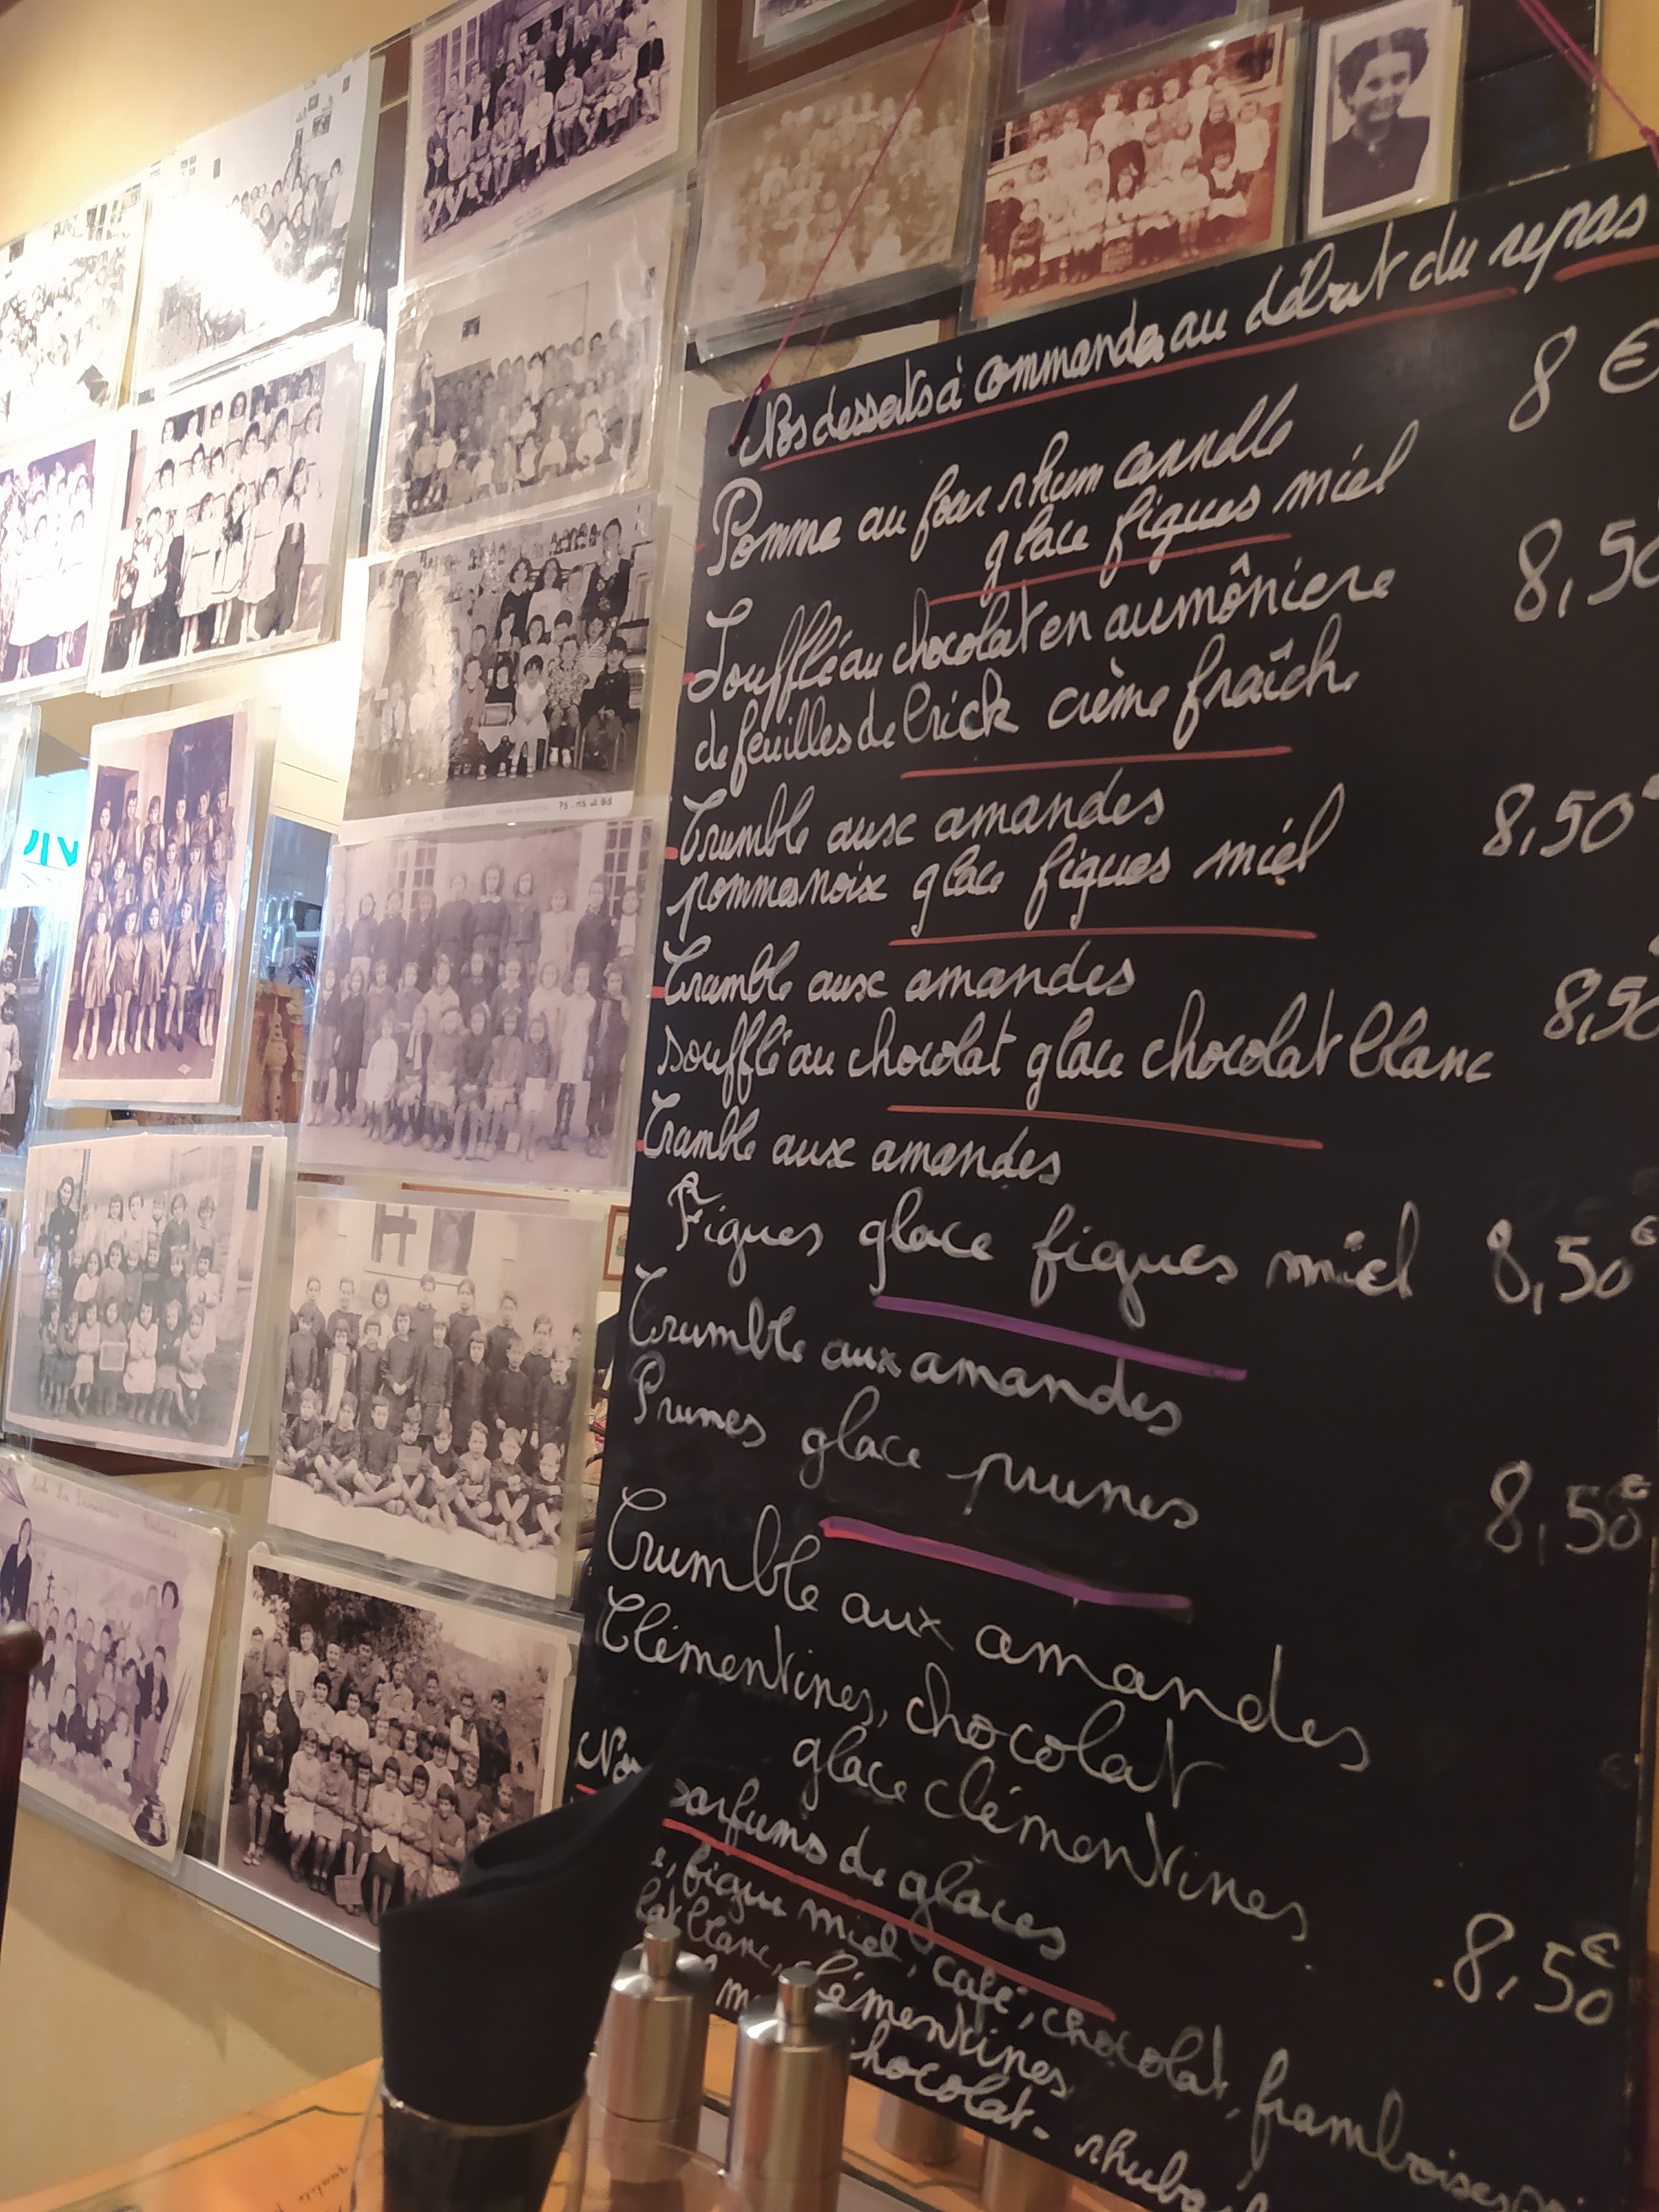 Nos desserts à commander au début du repas
Pomme au four rhum cannelle 8 €
glace figues miel
Soufflé au chocolat en aumônière 8,50
de feuilles de brick crème fraîche
Crumble aux amandes
pommes noix glace figues miel 8,50
Crumble aux amandes
soufflé au chocolat glace chocolat blanc 8,50
Crumble aux amandes
Figues glace figues miel 8,50€
Crumble aux amandes
Prunes glace prunes 8,50€
Crumble aux amandes
Clémentines, chocolat
glace clémentines 8,50€
parfums de glaces
figue miel, café, chocolat, framboises
blanc, clémentines
chocolat -